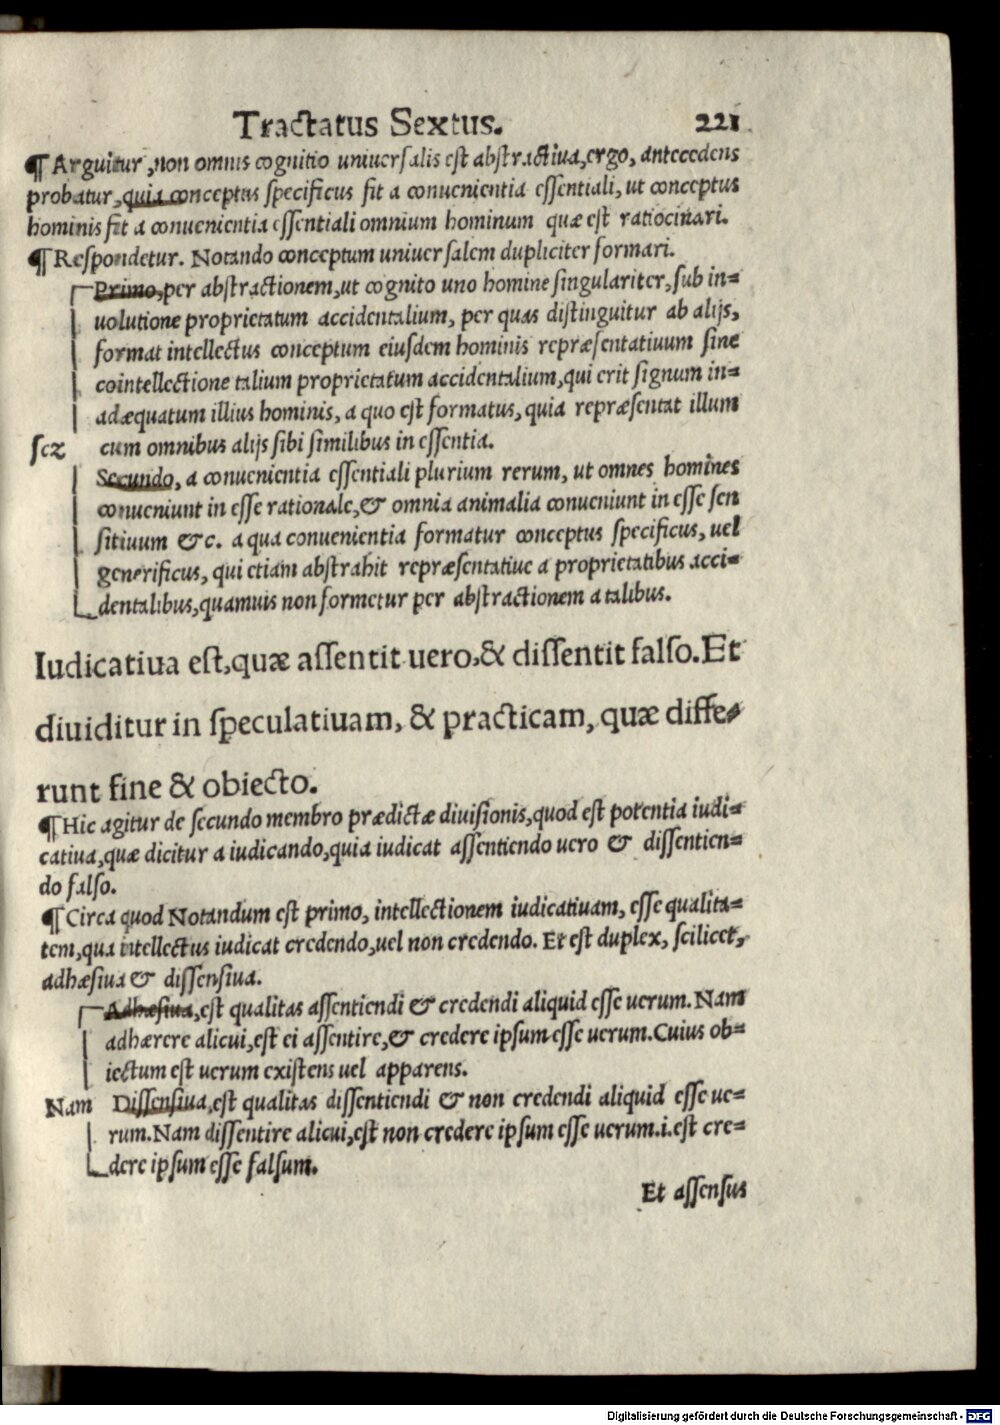 Tractatus Sextus. 221
¶ Arguitur, non omnis cognitio uniuersalis est abstractiua, ergo, antecedens
probatur, quia conceptus specificus fit a conuenientia essentiali, ut conceptus
hominis fit a conuenientia essentiali omnium hominum quæ est ratiocinari.
¶ Respondetur. Notando conceptum uniuersalem dupliciter formari.
Primo, per abstractionem, ut cognito uno homine singulariter, sub in=
uolutione proprietatum accidentalium, per quas distinguitur ab alijs,
format intellectus conceptum eiusdem hominis repræsentatiuum sine
cointellectione talium proprietatum accidentalium, qui erit signum in=
adæquatum illius hominis, a quo est formatus, quia repræsentat illum
scz cum omnibus alijs sibi similibus in essentia.
Secundo, a conuenientia essentiali plurium rerum, ut omnes homines
conueniunt in esse rationale, & omnia animalia conueniunt in esse sen
sitiuum &c. a qua conuenientia formatur conceptus specificus, uel
generificus, qui etiam abstrahit repræsentatiue a proprietatibus acci=
dentalibus, quamuis non formetur per abstractionem a talibus.
Iudicatiua est, quæ assentit uero, & dissentit falso. Et
diuiditur in speculatiuam, & practicam, quæ diffe=
runt fine & obiecto.
¶ Hic agitur de secundo membro prædictæ diuisionis, quod est potentia iudi=
catiua, quæ dicitur a iudicando, quia iudicat assentiendo uero & dissentien=
do falso.
¶ Circa quod Notandum est primo, intellectionem iudicatiuam, esse qualita=
tem, qua intellectus iudicat credendo, uel non credendo. Et est duplex, scilicet,
adhæsiua & dissensiua.
Adhæsiua, est qualitas assentiendi & credendi aliquid esse uerum. Nam
adhærere alicui, est ei assentire, & credere ipsum esse uerum. Cuius ob=
iectum est uerum existens uel apparens.
Nam Dissensiua, est qualitas dissentiendi & non credendi aliquid esse ue=
rum. Nam dissentire alicui, est non credere ipsum esse uerum. i. est cre=
dere ipsum esse falsum.
Et assensus
Digitalisierung gefördert durch die Deutsche Forschungsgemeinschaft - DFG